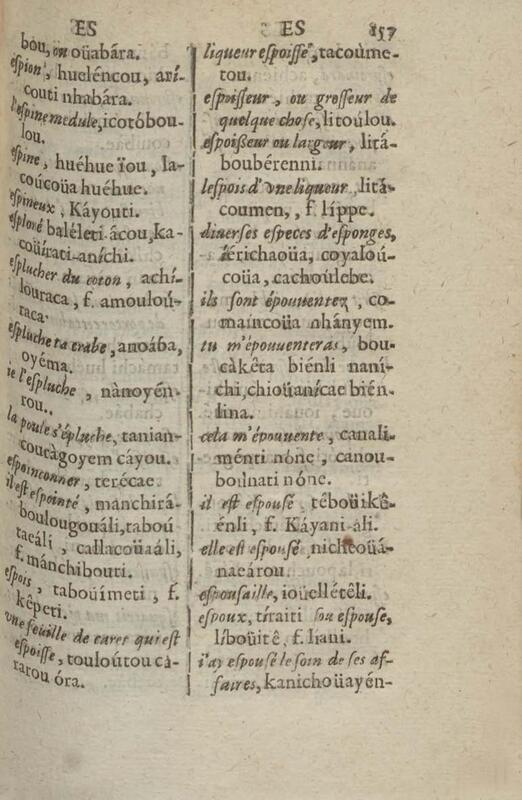 ES
bou, ou oüabára.
espion, hueléncou, arí-
couti nhabára.
l'espine medule, icotóbou-
lou.
espine, huéhue ïou, Ia-
coúcoüa huéhue.
espineux, Káyouti.
esploré baléleti-ácou, ka-
coüírati-aníchi.
esplucher du coton, achí-
louraca, f. amouloú-
raca.
espluche ta crabe, anoába,
oyéma.
ie l'espluche, nànoyén-
rou..
la poule s'épluche, tanian-
coucàgoyem cáyou.
espoinconner, terécae.
il est espointé, mánchirá-
boulougouáli, taboú
tacáli, callacoüaáli,
f. mánchibouti.
espois, taboüímeti, f.
kêpeti.
vne feüille de caret qui est
espoisse, touloútou cà-
rarou óra.
ES 857
liqueur espoisse, tacoúme-
tou.
espoisseur, ou grosseur de
quelque chose, litoúlou.
espoißeur ou largeur, litá-
boubérenni.
lespois d'vne liqueur, litá-
coumen,, f. líppe.
diuerses especes d'esponges,
íérichaoüa, coyaloú-
coüa, cachoúlebe.
ils sont épouuentez, co-
maíncoüa nhányem.
tu m'épouuenteras, bou-
càkêta biénli naní-
chi, chioüanícae bién-
lina.
cela m'épouuente, canali-
ménti nóne, canou-
boulnati nóne.
il est espousé, têboüikê-
énli, f. Káyani-áli.
elle est espousé nicheoüá-
naeárou.
espousaille, ioüellétêli.
espoux, tíraiti sou espouse,
líboüitê, f. liani.
i'ay espousé le soin de ses af-
faires, kanichoüayén-